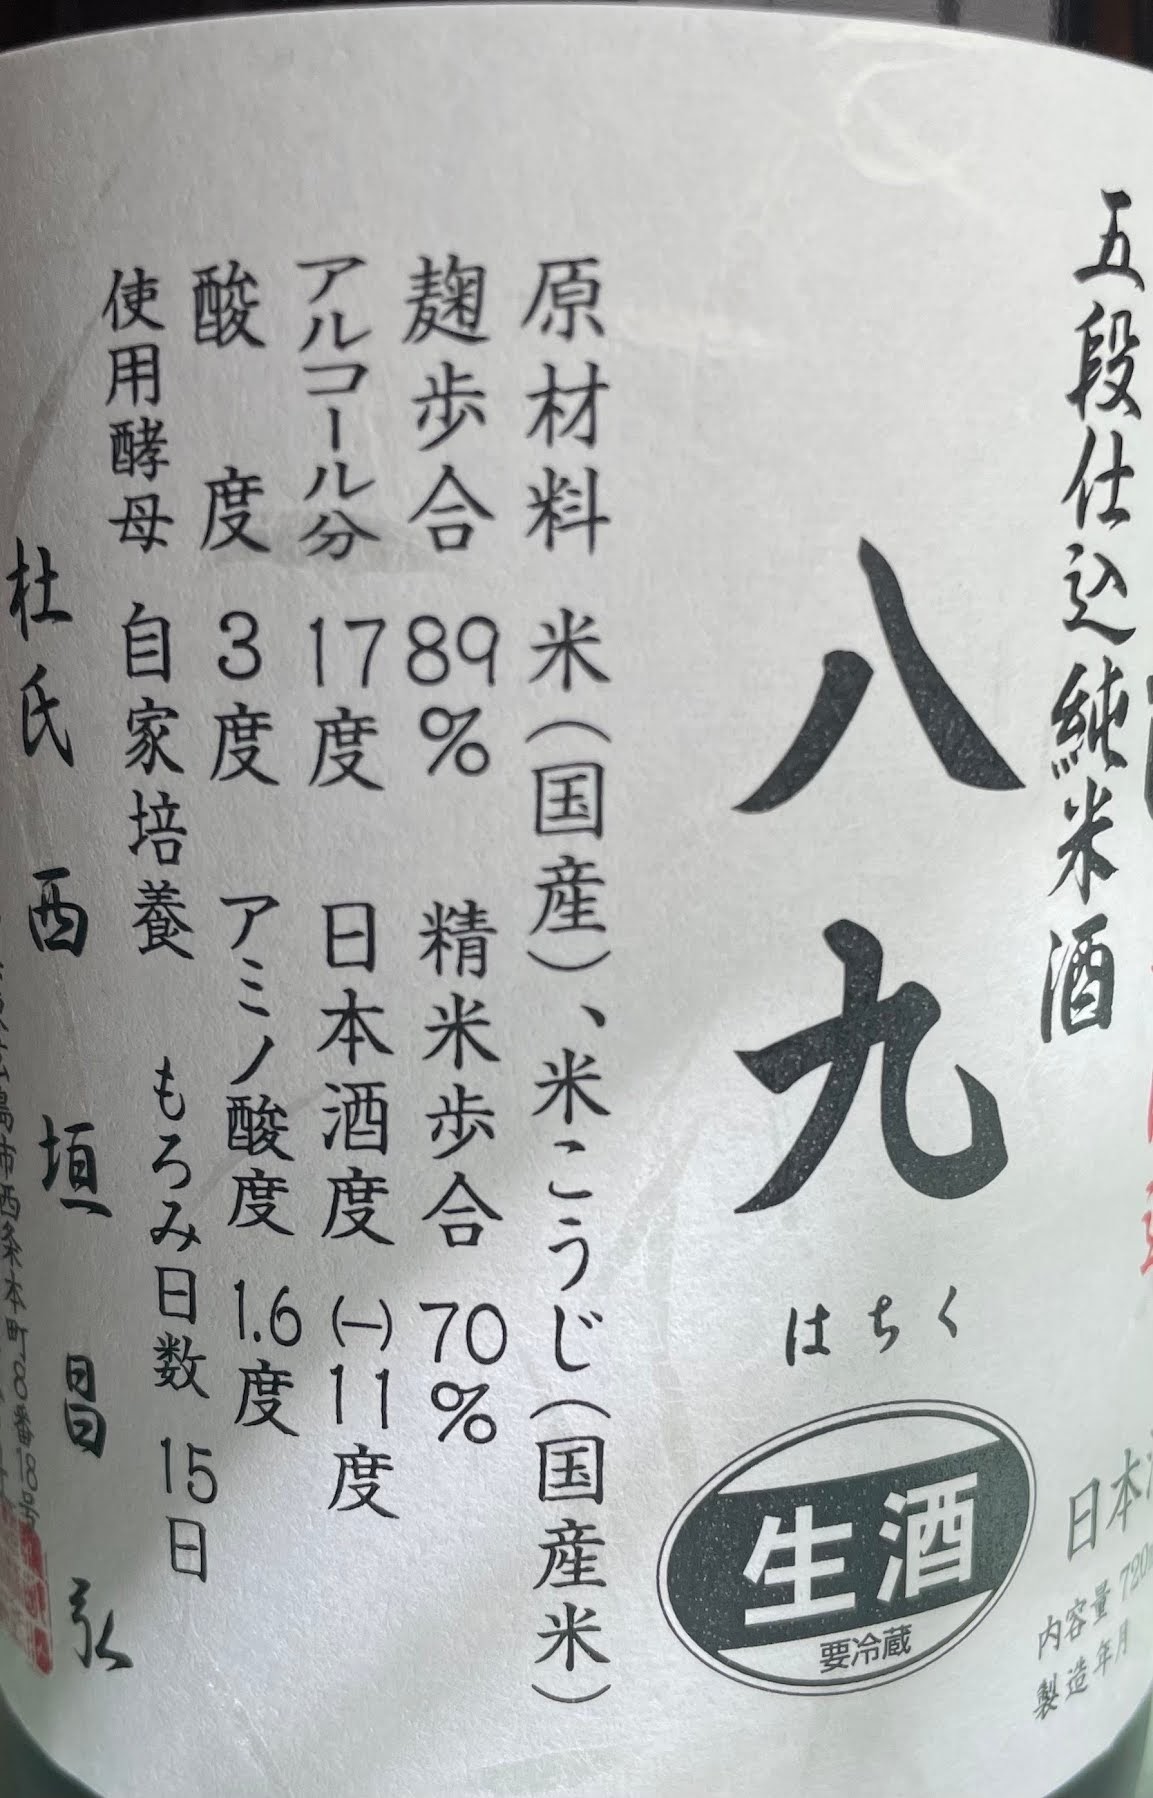 五段仕込純米酒
日本
内容量 720
製造年月
八九
はちく
生酒
要冷蔵
原材料 米(国産)、米こうじ(国産米)
麹歩合 89% 精米歩合 70%
アルコール分 17度 日本酒度 (−)11度
酸度 3度 アミノ酸度 1.6度
使用酵母 自家培養 もろみ日数 15日
杜氏 西垣昌弘
島市西条本町8番18号